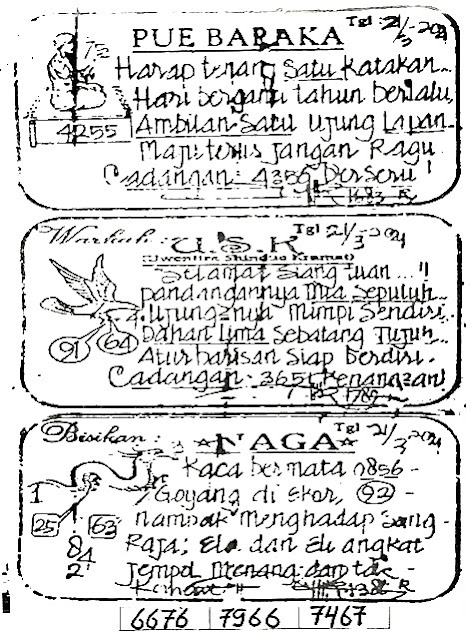 PUE BARAKA
Tgl: 21/3-2021
72
Harap tenang Satu katakan..
Hari berganti tahun berlalu
4255
Ambilan Satu Ujung Lapan..
Maju terus jangan Ragu
Cadangan: 4356 Berseru!
Warkah: U.S.K
Tgl 21/3-2021
Selamat Siang tuan...!!
pandangannya Mia Sepuluh..
Ujungnya Mimpi Sendiri
91 64
Dahan Lima Sebatang Tujuh..
Atur barisan Siap Berdiri.
Cadangan: 3651
Bisikan: NAGA
Tgl 21/3-2021
Kaca bermata 0856-
1 Goyang di Ekor, 92 -
25 63 nampak menghadap Sang-
84 Raja; Ela dan Eli angkat
2 Jempol menang dan tak -
6676 7966 7467